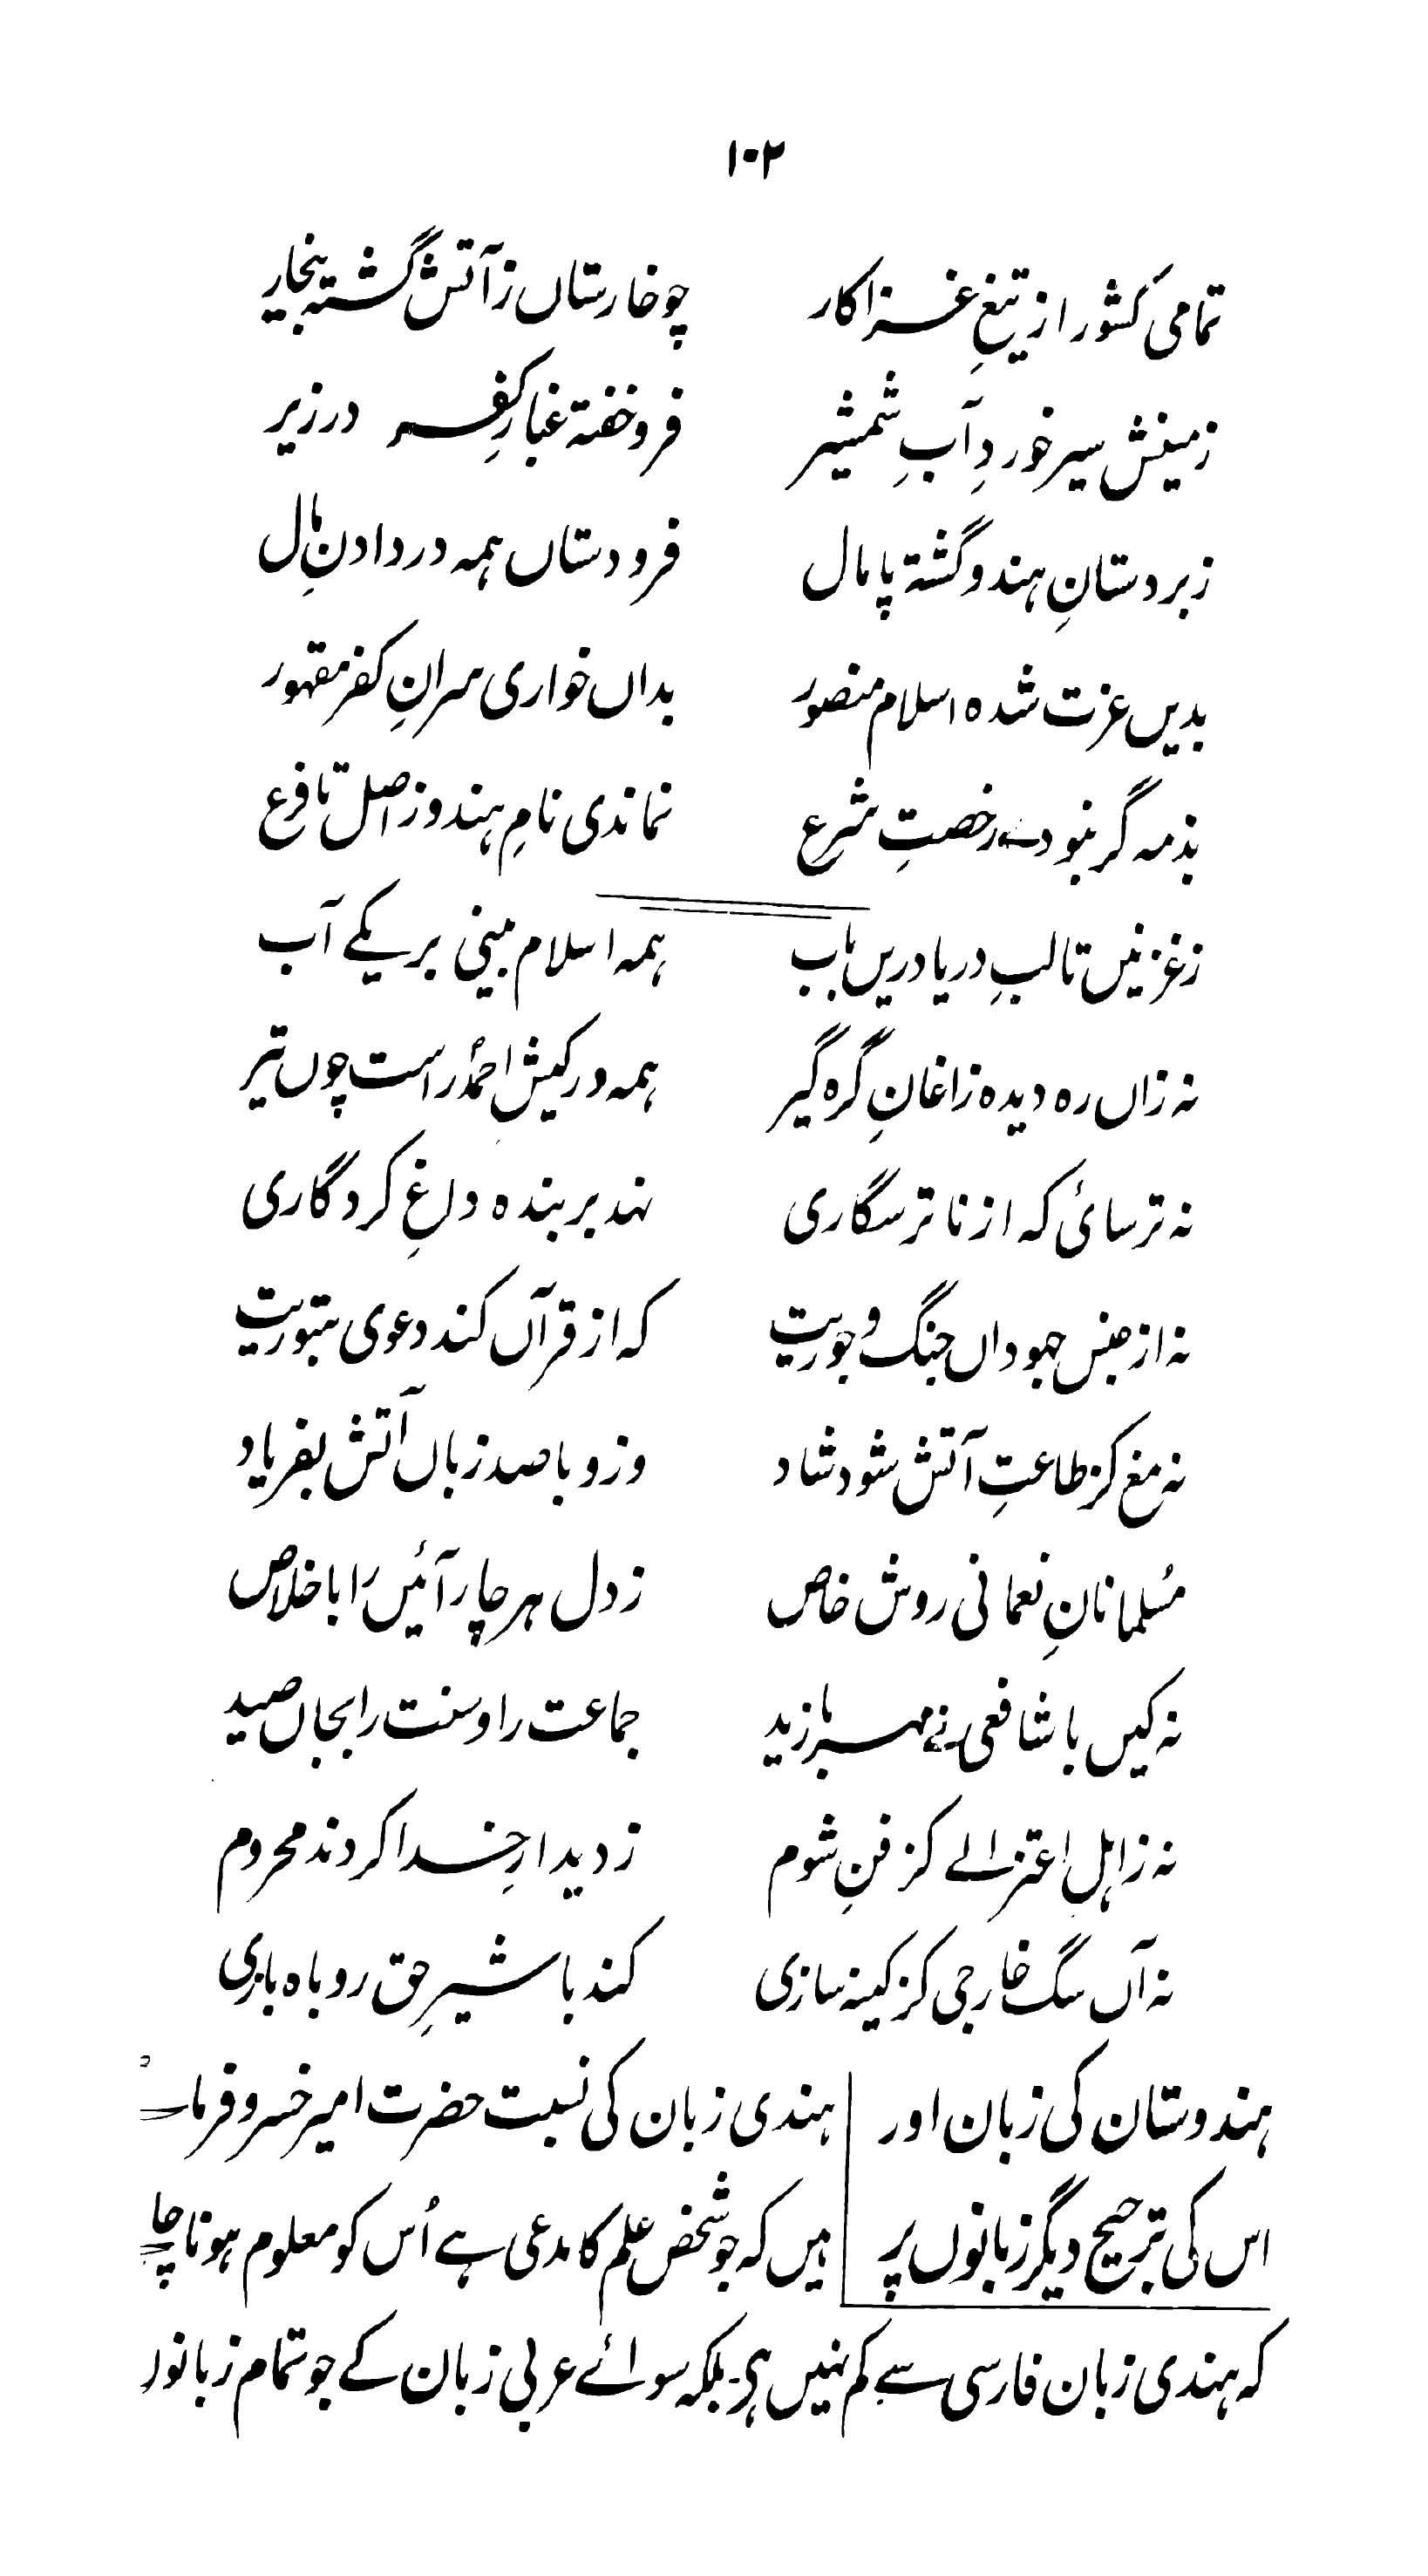 ۱۰۲
تمامی کشور از تیغِ غزا کار چو خارستاں ز آتش گشته بیخار
زمینش سیر خوردِ آبِ شمشیر فرو خفتة غبارِ کفر در زیر
زبردستانِ هندو گشتة پامال فرودستاں همه در دادنِ مال
بدیں عزت شده اسلام منصور بداں خواری سرانِ کفر مقهور
بذمه گر نبودے رخصتِ شرع نماندی نامِ هندو ز اصل تا فرع
ز غزنیں تا لبِ دریا دریں باب همه اسلام بینی بر یکے آب
نه زاں ره دیده زاغانِ گره گیر همه در کیشِ احمدؐ راست چوں تیر
نه ترسائی که از ناترسگاری نهد بر بنده داغِ کردگاری
نه از جنس جهوداں جنگ و جوریت که از قرآں کند دعوی بتوریت
نه مغ کز طاعتِ آتش شود شاد وزو با صد زباں آتش بفریاد
مُسلمانانِ نعمانی روش خاص ز دل هر چار آئیں را باخلاص
نه کیں با شافعی نے مهر با زید جماعت را و سنت را بجاں صید
نه ز اهلِ اعتزالے کز فنِ شوم ز دیدارِ خدا گردند محروم
نه آں سگ خارجی کز کینه سازی کند با شیرِ حق روباه بازی
ہندوستان کی زبان اور
اس کی ترجیح دیگر زبانوں پر
ہندی زبان کی نسبت حضرت امیر خسرو فرماتے
ہیں کہ جو شخص علم کا مدعی ہے اُس کو معلوم ہونا چاہیے
کہ ہندی زبان فارسی سے کم نہیں ہی۔ بلکہ سوائے عربی زبان کے جو تمام زبانوں